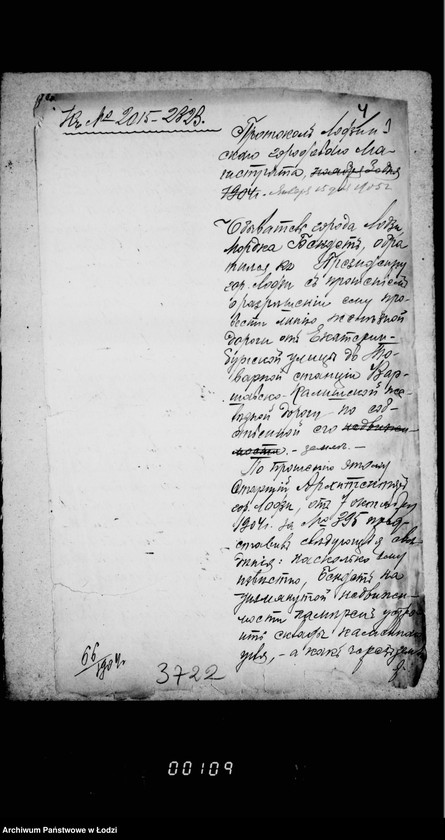 Къ № 2015-2823.
4
Протоколъ Лодзин
скаго городского Ма-
гистрата, ноября 3 дня
1904 г. Января 15 дня 1905 г.
Обыватель города Лодзи
Мордка Бендетъ, обра
тился къ Президенту
гор. Лодзи съ прошеніемъ
о разрешеніи ему про-
вести линію желѣзной
дороги отъ Екатерин-
бургской улицы до То-
варной станціи Вар-
шавско-Калишской же-
лѣзной дороги по соб-
ственной его недвижи-
мости. - землѣ. -
По прошенію этому
Старшій Архитекторъ
гор. Лодзи, отъ 7 октября
1904 г. за № 395 пред-
ставилъ слѣдующія свѣ-
дѣнія: насколько ему
извѣстно, Бендетъ на
упомянутой недвижи-
мости намѣренъ устро-
ить складъ каменнаго
угля, - а какъ
66/1904 г.
3722
00109
Archiwum Państwowe w Łodzi